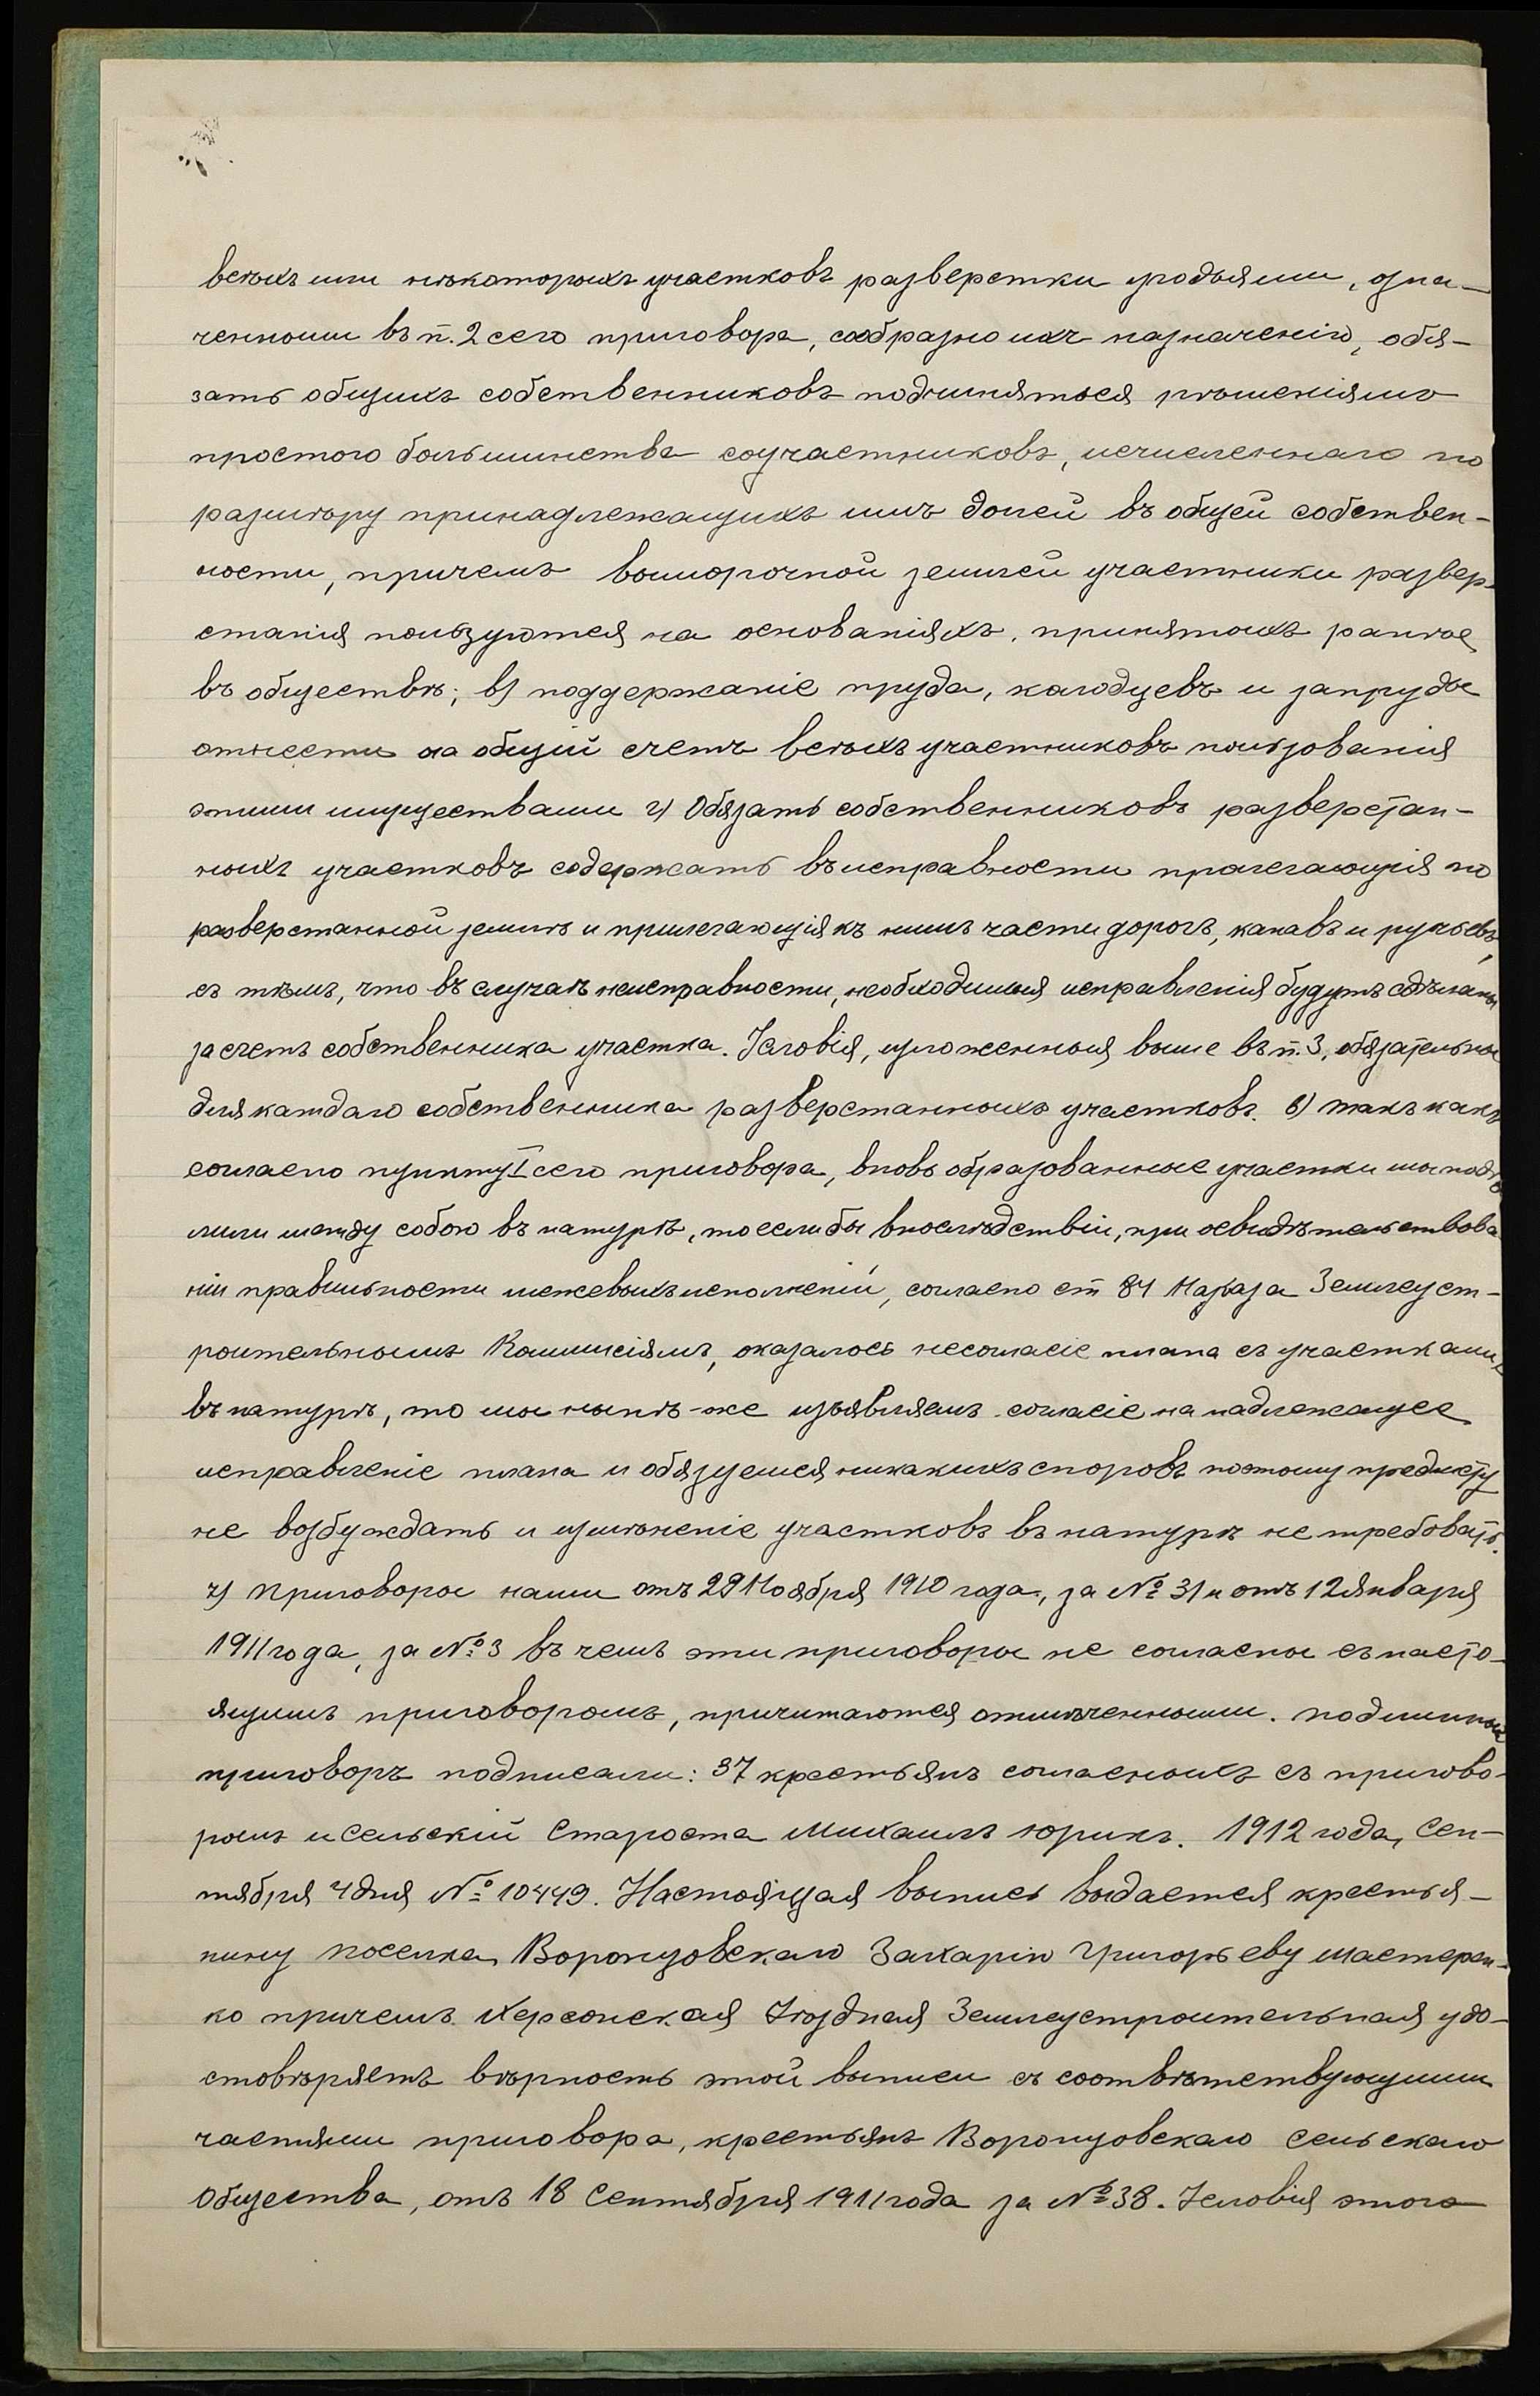 всѣхъ или нѣкоторыхъ участковъ разверстки угодьями, озна-
ченными въ п. 2 сего приговора, сообразно ихъ назначенію, обя-
зать общихъ собственниковъ подчиняться рѣшеніямъ
простого большинства соучастниковъ, исчисленнаго по
размѣру принадлежащихъ имъ долей въ общей собствен-
ности, причемъ выморочной землей участники развер-
станія пользуются на основаніяхъ, принятыхъ ранѣе
въ обществѣ; в) поддержаніе пруда, колодцевъ и запруды
отнести на общій счетъ всѣхъ участниковъ пользованія
этими имуществами г) Обязать собственниковъ разверстан-
ныхъ участковъ содержать въ исправности пролегающія по
разверстанной землѣ и прилегающія къ нимъ части дорогъ, канавъ и ручьевъ,
съ тѣмъ, что въ случаѣ неисправности, необходимыя исправленія будутъ сдѣланы
за счетъ собственника участка. Условія, изложенныя выше въ п. 3, обязательны
для каждаго собственника разверстанныхъ участковъ. 6) такъ какъ
согласно пункту I сего приговора, вновь образованные участки мы подѣ
лили между собою въ натурѣ, то если бы впослѣдствіи, при освидѣтельствова
ніи правильности межевыхъ исполненій, согласно ст 84 Наказа Землеуст-
роительнымъ Коммисіямъ, оказалось несогласіе плана съ участками
въ натурѣ, то мы нынѣ-же изъявляемъ согласіе на надлежащее
исправленіе плана и обязуемся никакихъ споровъ по этому предмету
не возбуждать и измѣненіе участковъ въ натурѣ не требовать.
7) Приговоры наши отъ 29 Ноября 1910 года, за № 31 и отъ 12 Января
1911 года, за № 3 въ чемъ эти приговоры не согласны съ насто-
ящимъ приговоромъ, причитаются отмѣченными. подлинный
приговоръ подписали: 37 крестьянъ согласныхъ съ пригово-
ромъ и Сельскій Староста Михаилъ Юрикъ. 1912 года, Сен-
тября 4 дня № 10449. Настоящая выпись выдается крестья-
нину поселка Воронцовскаго Захарію Григорьеву Мастерен-
ко причемъ Херсонская Уѣздная Землеустроительная удо-
стовѣряетъ вѣрность этой выписи съ соотвѣтствующими
частями приговора, крестьянъ Воронцовскаго Сельскаго
Общества, отъ 18 Сентября 1911 года за № 38. Условія этого